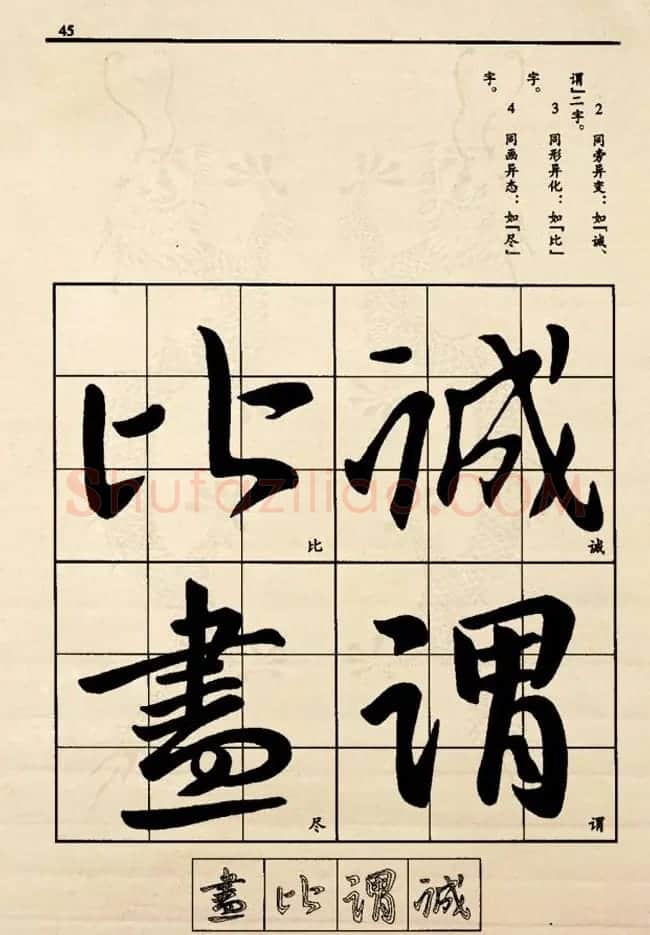 45
2 同旁异变：如『诚、
谓』二字。
3 同形异化：如『比』
字。
4 同画异态：如『尽』
字。
誠
诚
謂
谓
比
比
盡
尽
盡比謂誠
Shufaziliao.COM